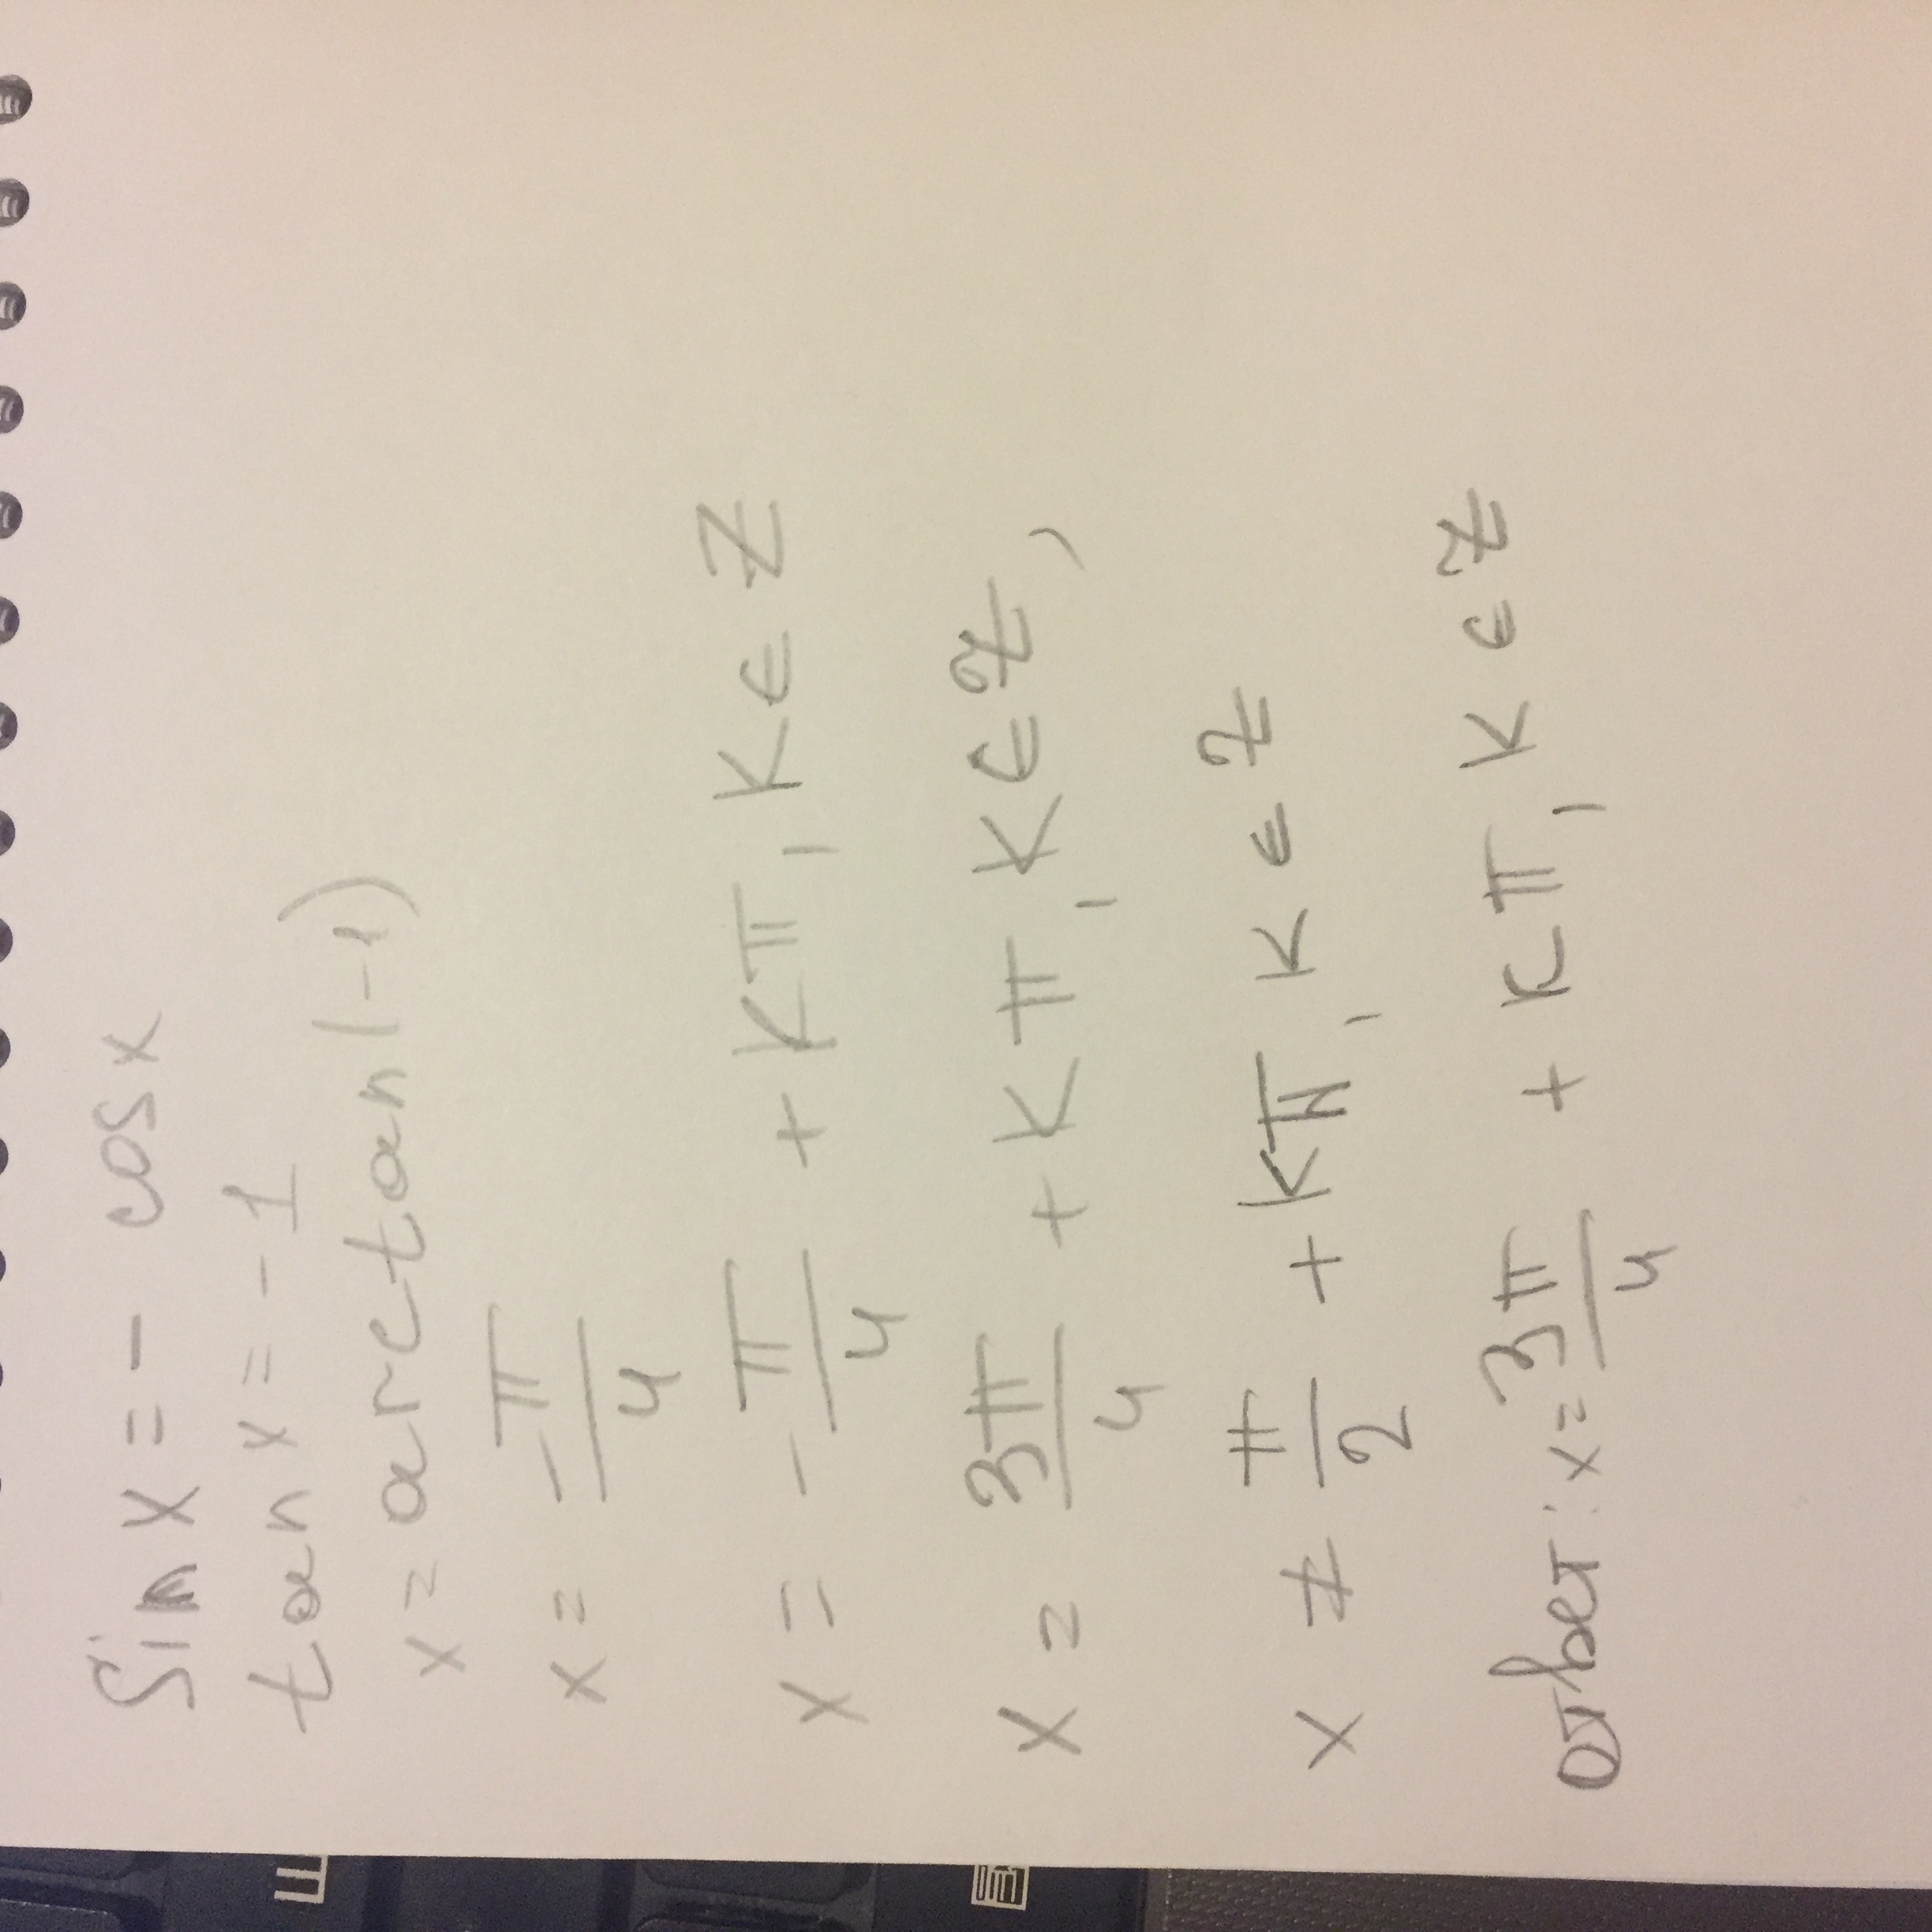 Sin x = - cos x
tan x = -1
x = arctan(-1)
x = -π/4
x = -π/4 + Kπ, K ∈ Z
x = 3π/4 + Kπ, K ∈ Z,
x ≠ π/2 + Kπ, K ∈ Z
Ответ: x = 3π/4 + Kπ, K ∈ Z